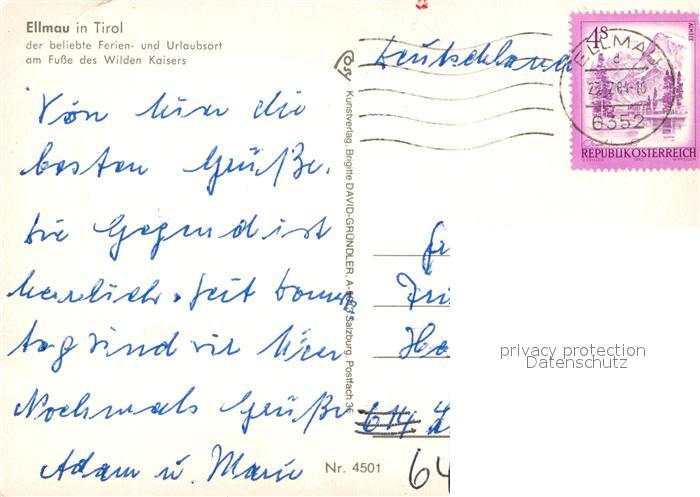 Ellmau in Tirol
der beliebte Ferien- und Urlaubsort
am Fuße des Wilden Kaisers
Von hier die
besten Grüße.
Die Gegend ist
herrlich. Seit Donners
tag sind wir hier
Nochmals Grüße
Adam u. Marie
Nr. 4501
Kunstverlag, Brigitte DAVID-GRÜNDLER, Salzburg, Postfach 36
Deutschland
4S
ALMSEE
ELLMAU
6352
REPUBLIK ÖSTERREICH
privacy protection
Datenschutz
614
64